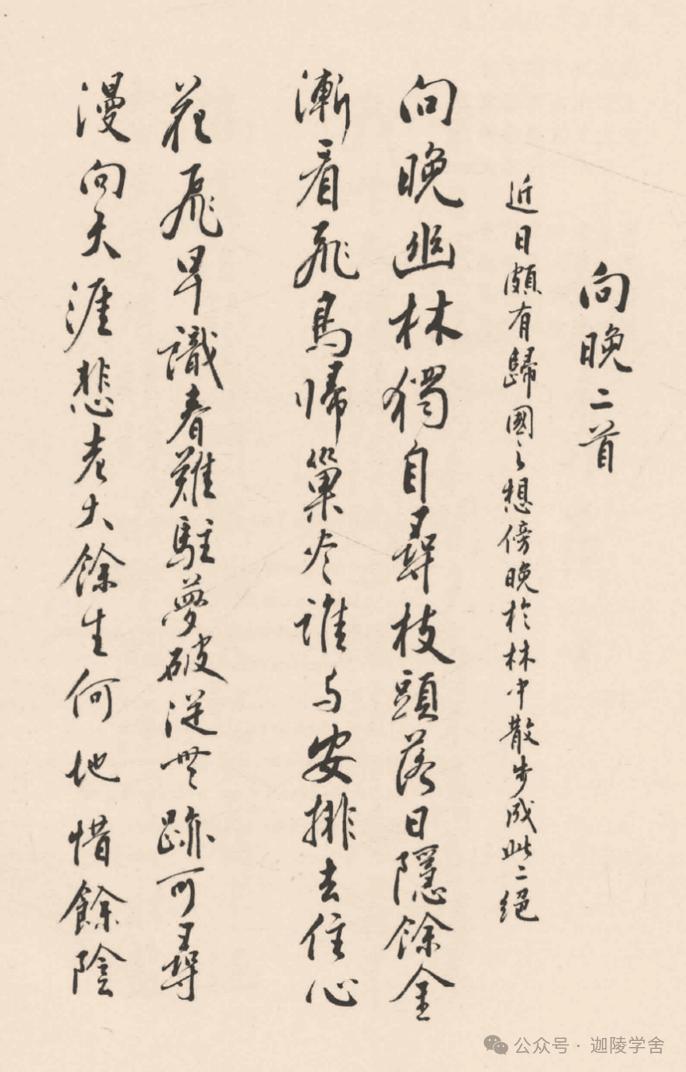 向晚二首
近日頗有歸國之想傍晚於林中散步成此二絕
向晚幽林獨自尋枝頭落日隱餘金
漸看飛鳥歸巢盡誰与安排去住心
花飛早識春難駐夢破從無跡可尋
漫向天涯悲老大餘生何地惜餘陰
公众号·迦陵学舍